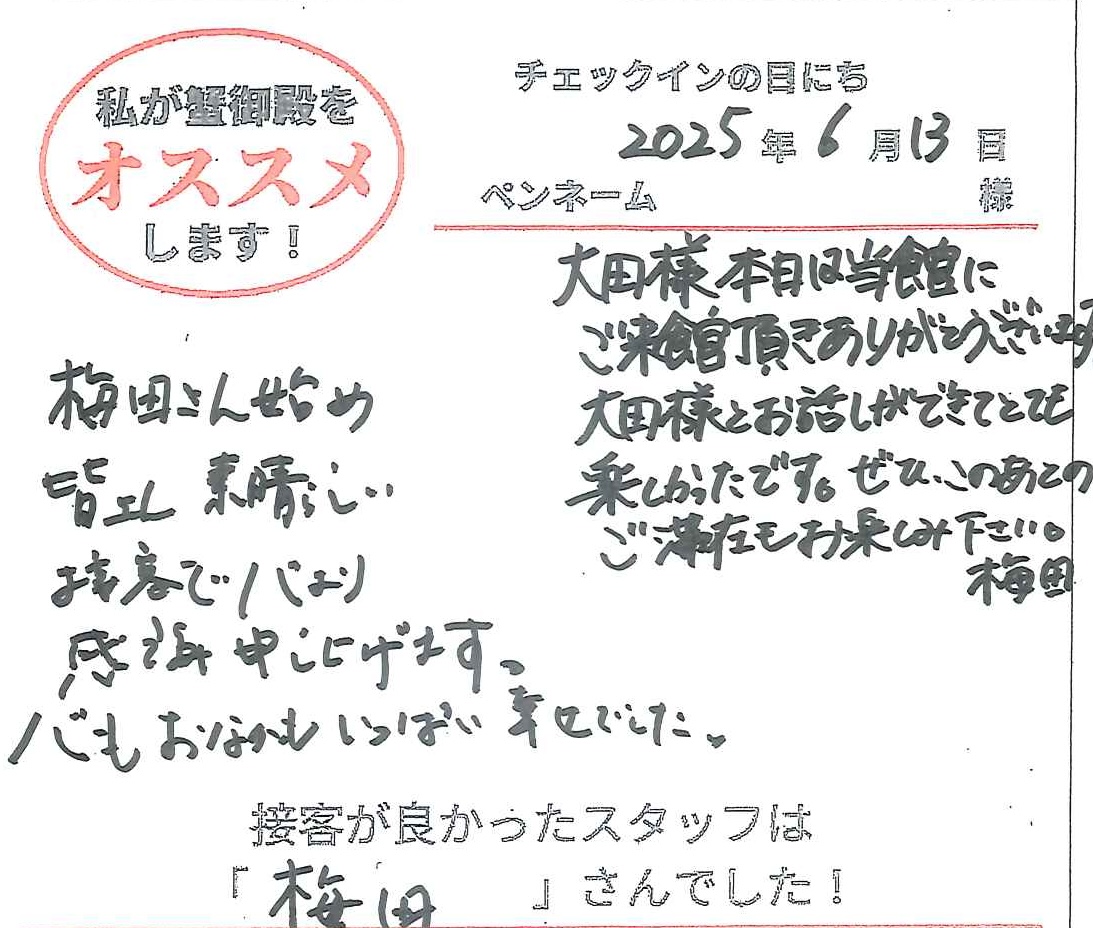 私が蟹御殿を
オススメ
します！
チェックインの日にち
2025年6月13日
ペンネーム 様
大田様本日は当館に
ご来館頂きありがとうございます
大田様とお話しができてとても
楽しかったです。ぜひ、このあとの
ご滞在もお楽しみ下さい。
梅田
梅田さん始め
皆さん 素晴らしい
接客で心より
感謝申し上げます。
心もおなかもいっぱい幸せでした。
接客が良かったスタッフは
「梅田」さんでした！